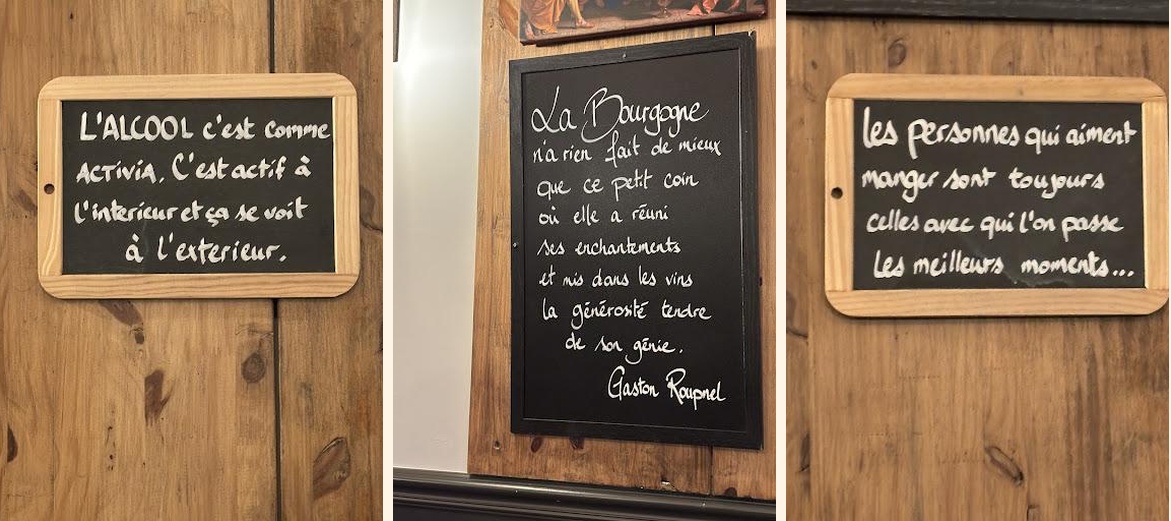 L'ALCOOL c'est comme
ACTIVIA. C'est actif à
l'interieur et ça se voit
à l'exterieur.
La Bourgogne
n'a rien fait de mieux
que ce petit coin
où elle a réuni
ses enchantements
et mis dans les vins
la générosité tendre
de son génie.
Gaston Roupnel
Les personnes qui aiment
manger sont toujours
celles avec qui l'on passe
Les meilleurs moments...